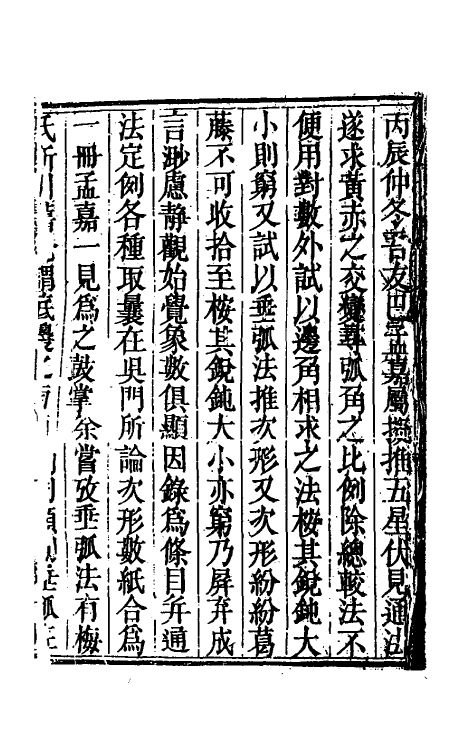 丙辰仲冬吾友巴孟嘉屬撰推五星伏見通法
遂求黃赤之交變尋弧角之比例除總較法不
便用對數外試以邊角相求之法按其銳鈍大
小則窮又試以垂弧法推次形又次形紛紛葛
藤不可收拾至桉其銳鈍大小亦窮乃屏弃成
言渺慮靜觀始覺象數俱顯因錄為條目并通
法定例各種取曩在吳門所論次形數紙合為
一冊孟嘉一見為之鼓掌余嘗攷垂弧法有梅
氏所